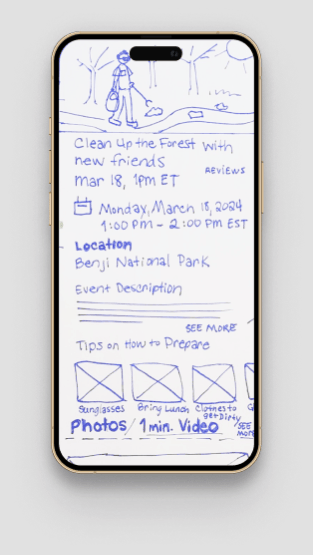 Clean Up the Forest with
new friends
REVIEWS
mar 18, 1PM ET
Monday, March 18, 2024
1:00 Pm - 2:00 Pm EST
Location
Benji National Park
Event Description
SEE MORE
Tips on How to Prepare
Sunglasses
Bring Lunch
Clothes to
get Dirty
G
Photos / 1 min. Video
SEE
more